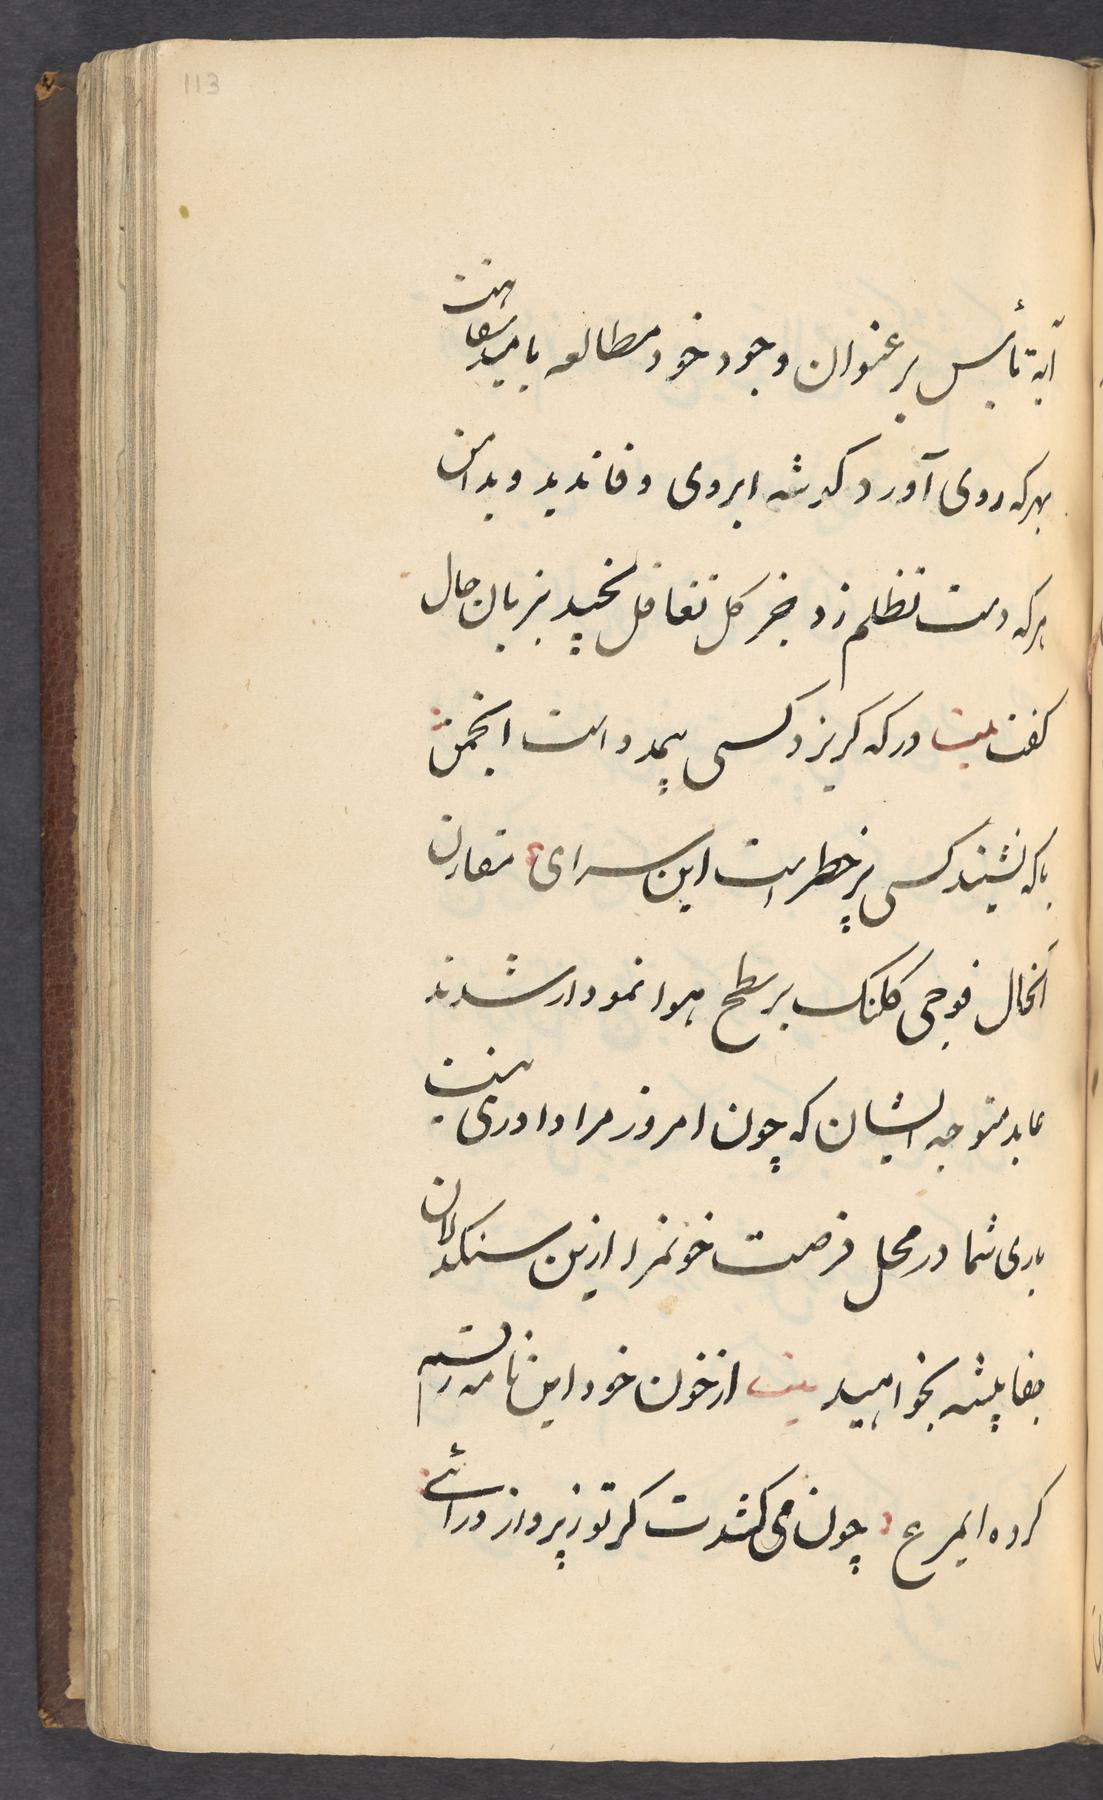 113
آیة یأس بر عنوان وجود خود مطالعه بامید شفاهت
بهر که روی آورد کوشه ابروی وفا ندید و بدامن
هر که دست تظلم زد جز کل تغافل نچید بزبان حال
کفت بیت در که کریزد کسی بیمدد است انجمن
با که نشیند کسی پرخطر است این سرای مقارن
آنحال فوجی کلنک بر سطح هوا نمودار شدند
عابد متوجه ایشان که چون امروز مرا دادرسی نیست
باری شما در محل فرصت خونمرا ازین سنکدلان
جفا پیشه بخواهید بیت از خون خود این نامه رقم
کرده ایمرغ چون می کشدت کر تو ز پرواز درائی